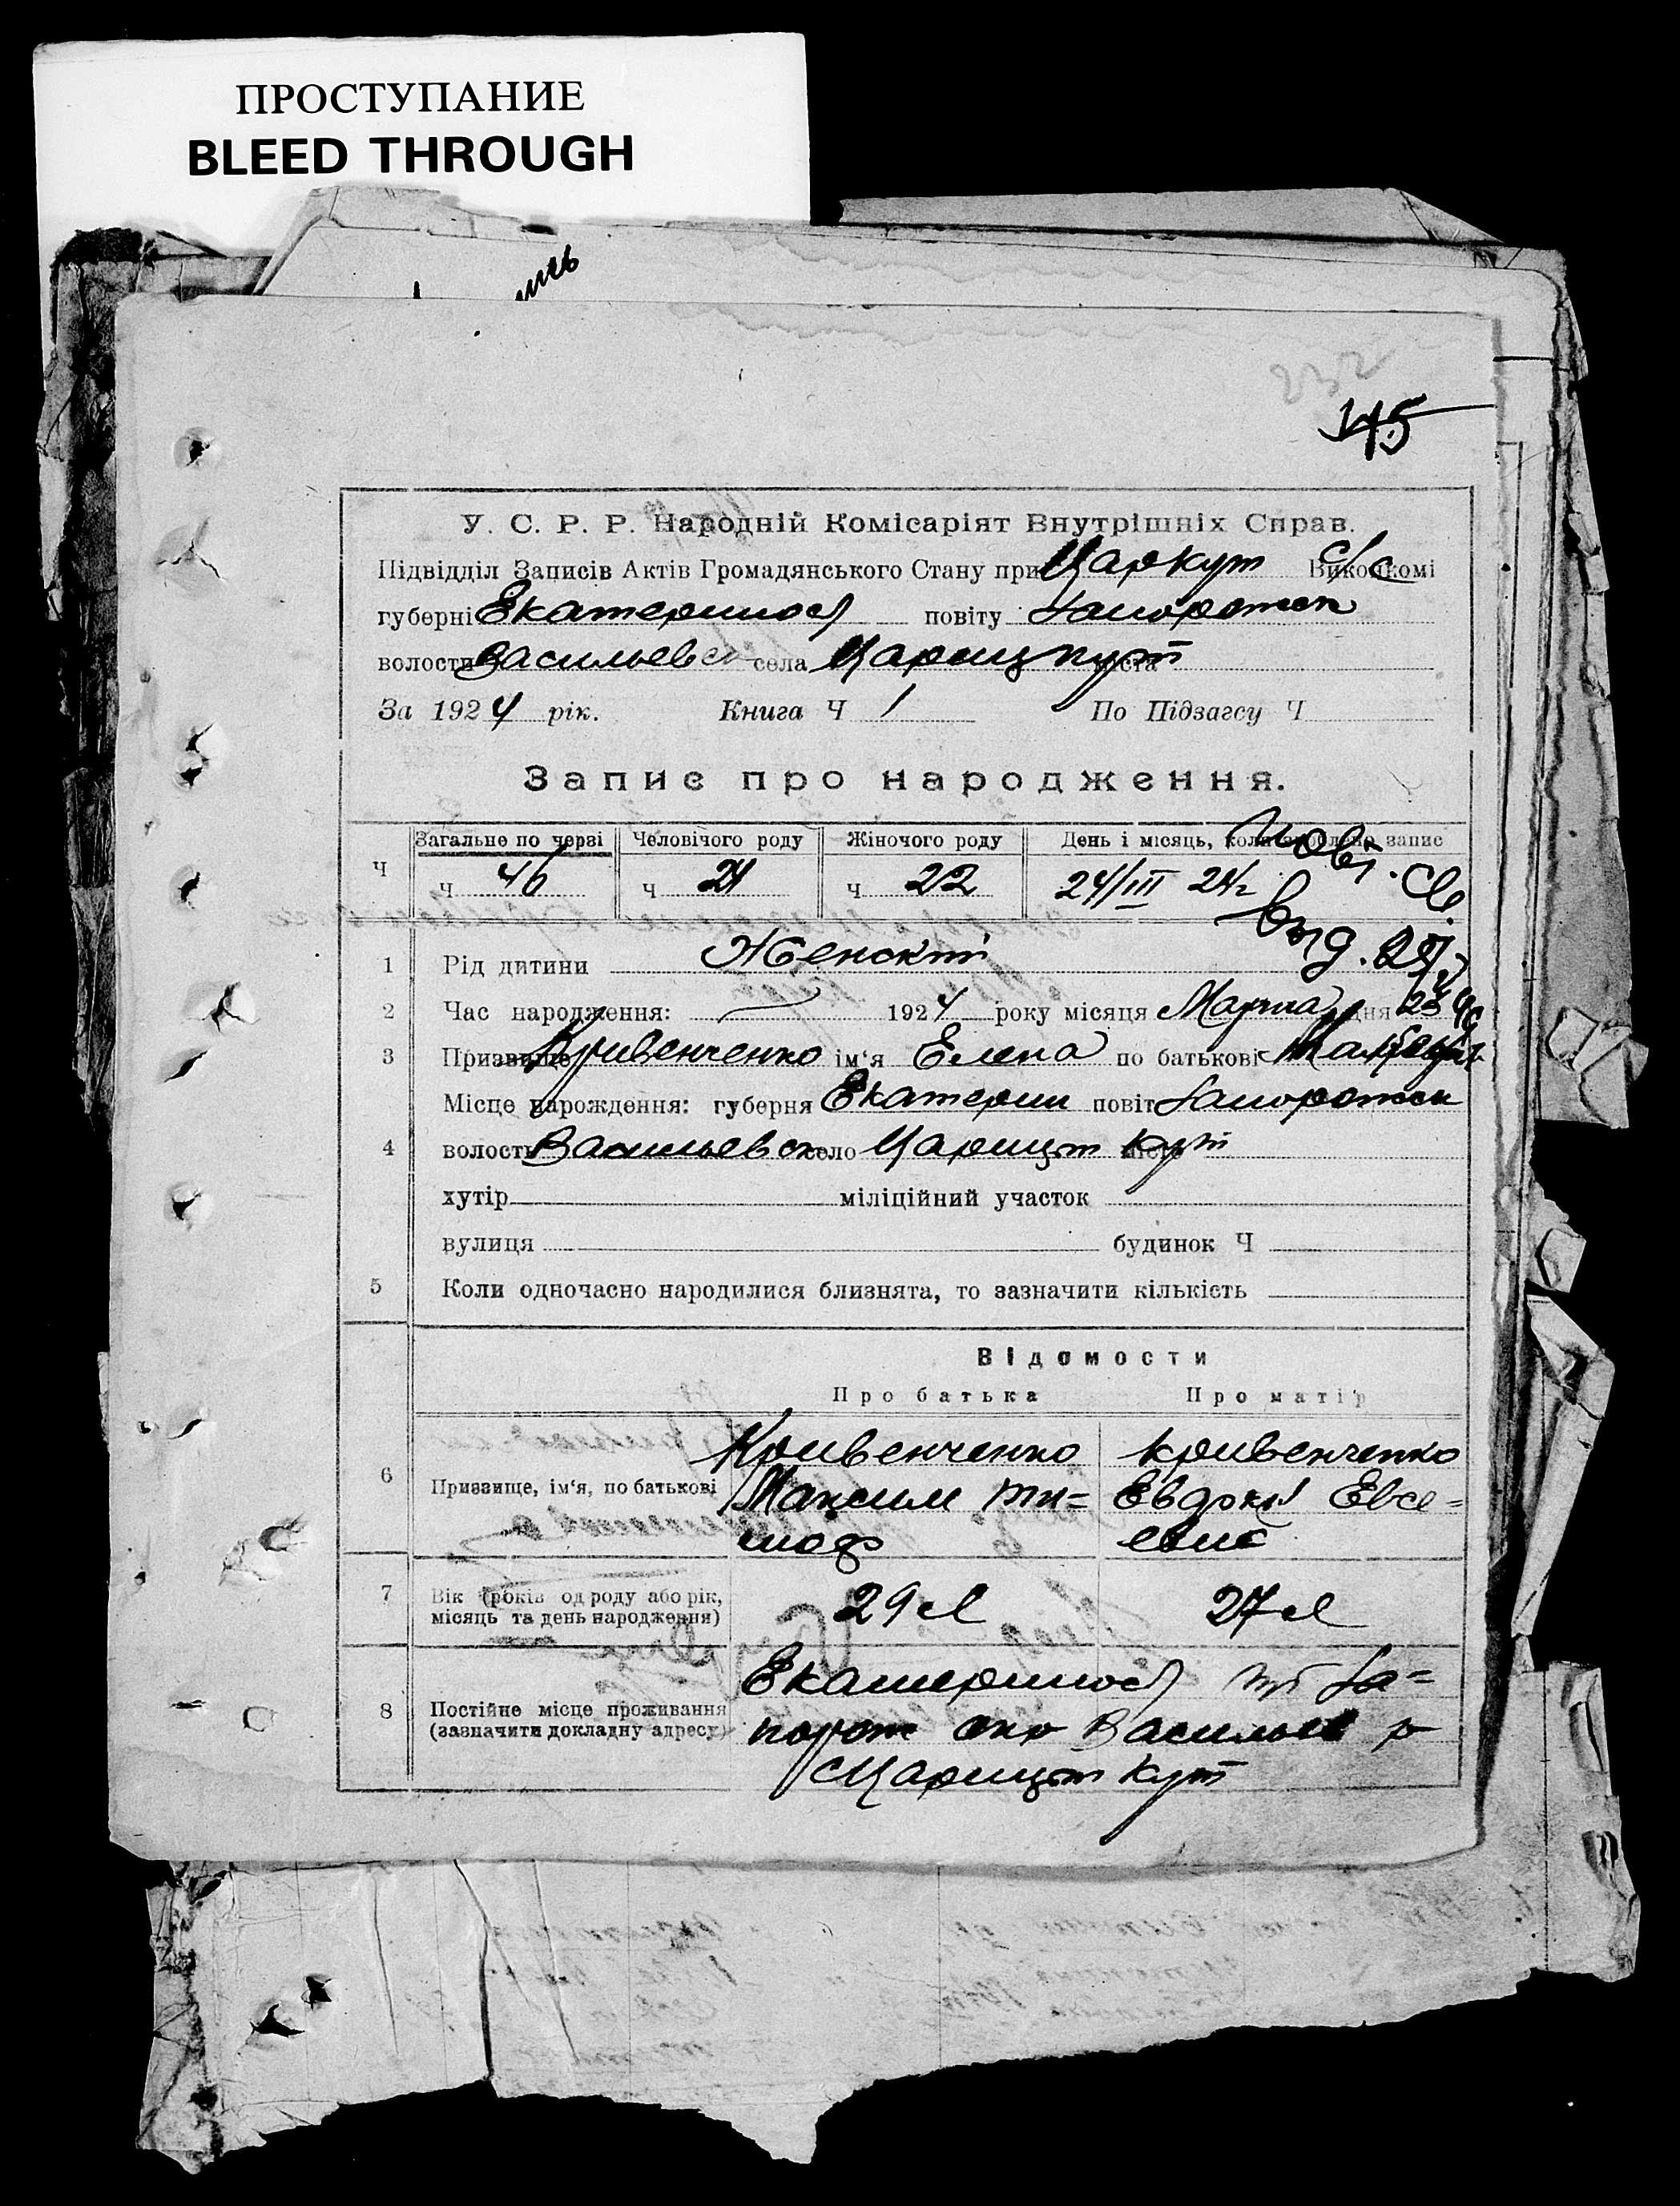 ПРОСТУПАНИЕ
BLEED THROUGH
145
У. С. Р. Р. Народній Комісаріят Внутрішніх Справ.
Підвідділ Записів Актів Громадянського Стану при Царкут с/с Виконкомі
губерні Екатеринос повіту Запорожск
волости Васильевск села Царицкут міста
За 1924 рік. Книга Ч 1 По Підзагсу Ч
Запис про народження.
Загальне по черзі Человічого роду Жіночого роду День і місяць, коли зроблено запис
Ч
Ч 46 Ч 24 Ч 22 24/III 24г
Выд.
1 Рід дитини Женский
2 Час народження: 1924 року місяця Марта дня 23
3 Призвище Кривенченко ім'я Елена по батькові
Місце нарождення: губерня Екатерин повіт Запорожск
4 волость Васильевск село Царицын Кут місто
хутір міліційний участок
вулиця будинок Ч
5 Коли одночасно народилися близнята, то зазначити кількість
Відомости
Про батька Про матір
6 Призвище, ім'я, по батькові
Кривенченко Кривенченко
Максим Ти= Евдоки Евсе=
моф евна
7 Вік (років од роду або рік, місяць та день народження) 29 л 27 л
8 Постійне місце проживання (зазначити докладну адресу)
Екатеринос За=
порож окр Васильев р
Царицын Кут